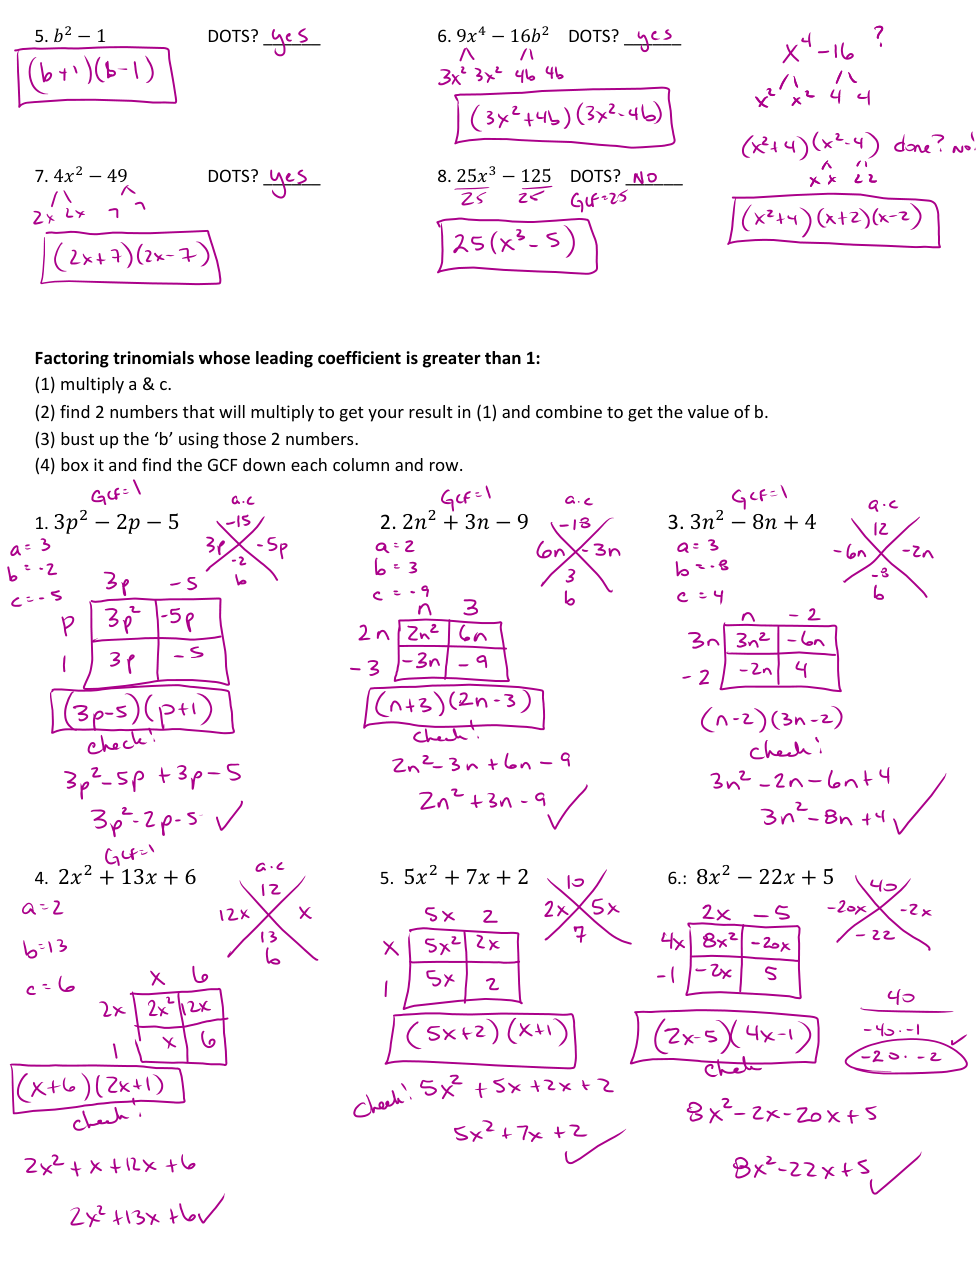 5. b² − 1 DOTS? yes
(b+1)(b-1)
6. 9x⁴ − 16b² DOTS? yes
3x² 3x² 4b 4b
(3x²+4b)(3x²-4b)
x⁴-16 ?
x² x² 4 4
(x²+4)(x²-4) done? No!
x x 2 2
(x²+4)(x+2)(x-2)
7. 4x² − 49 DOTS? yes
2x 2x 7 7
(2x+7)(2x-7)
8. 25x³ − 125 DOTS? NO
25 25 GCF=25
25(x³-5)
Factoring trinomials whose leading coefficient is greater than 1:
(1) multiply a & c.
(2) find 2 numbers that will multiply to get your result in (1) and combine to get the value of b.
(3) bust up the ‘b’ using those 2 numbers.
(4) box it and find the GCF down each column and row.
GCF=1
1. 3p² − 2p − 5
a.c
-15
3p -5p
-2
b
a=3
b=-2
c=-5
3p -5
p 3p² -5p
1 3p -5
(3p-5)(p+1)
check!
3p²-5p+3p-5
3p²-2p-5 ✓
GCF=1
2. 2n² + 3n − 9
a.c
-18
6n -3n
3
b
a=2
b=3
c=-9
n 3
2n 2n² 6n
-3 -3n -9
(n+3)(2n-3)
check!
2n²-3n+6n-9
2n²+3n-9 ✓
GCF=1
3. 3n² − 8n + 4
a.c
12
-6n -2n
-8
b
a=3
b=-8
c=4
n -2
3n 3n² -6n
-2 -2n 4
(n-2)(3n-2)
check!
3n²-2n-6n+4
3n²-8n+4 ✓
GCF=1
4. 2x² + 13x + 6
a.c
12
12x x
13
b
a=2
b=13
c=6
x 6
2x 2x² 12x
1 x 6
(x+6)(2x+1)
check!
2x²+x+12x+6
2x²+13x+6 ✓
5. 5x² + 7x + 2
10
2x 5x
7
5x 2
x 5x² 2x
1 5x 2
(5x+2)(x+1)
check! 5x²+5x+2x+2
5x²+7x+2 ✓
6.: 8x² − 22x + 5
40
-20x -2x
-22
2x -5
4x 8x² -20x
-1 -2x 5
40
-40·-1
-20·-2 ✓
(2x-5)(4x-1)
Check
8x²-2x-20x+5
8x²-22x+5 ✓